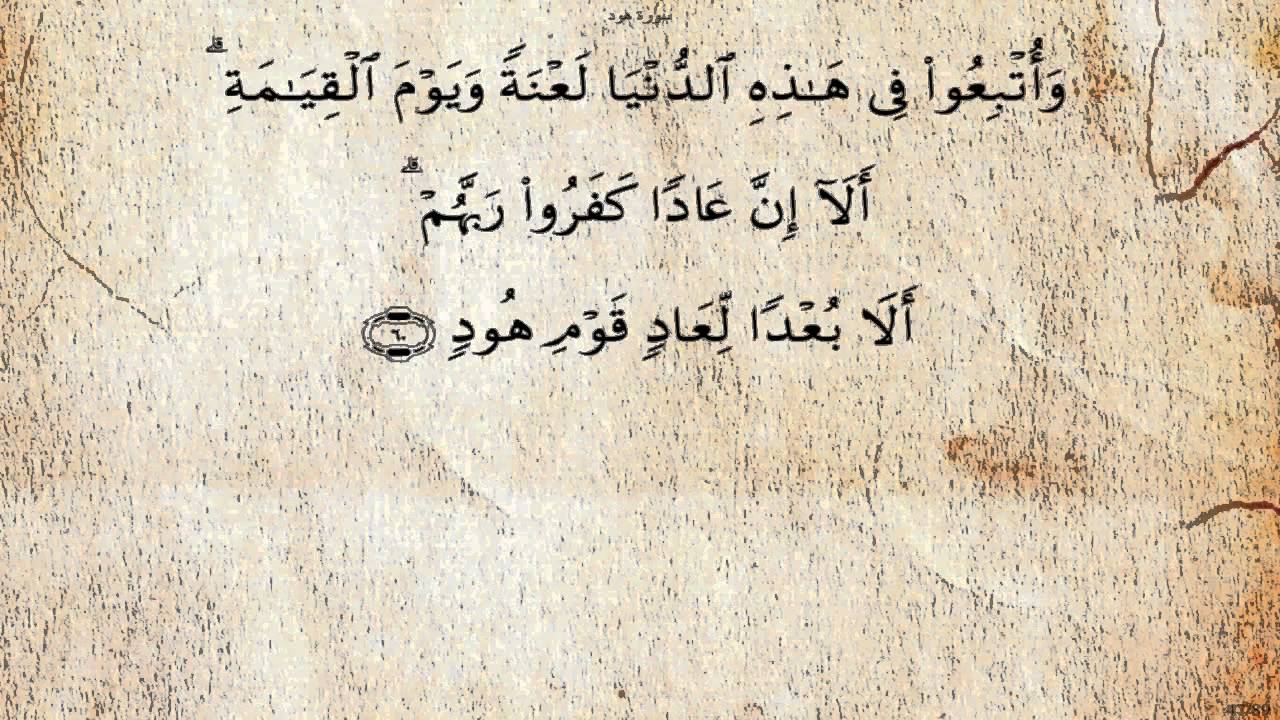 سورة هود
وَأُتْبِعُوا۟ فِى هَـٰذِهِ ٱلدُّنْيَا لَعْنَةً وَيَوْمَ ٱلْقِيَـٰمَةِ ۗ
أَلَآ إِنَّ عَادًا كَفَرُوا۟ رَبَّهُمْ ۗ
أَلَا بُعْدًا لِّعَادٍ قَوْمِ هُودٍ ٦٠